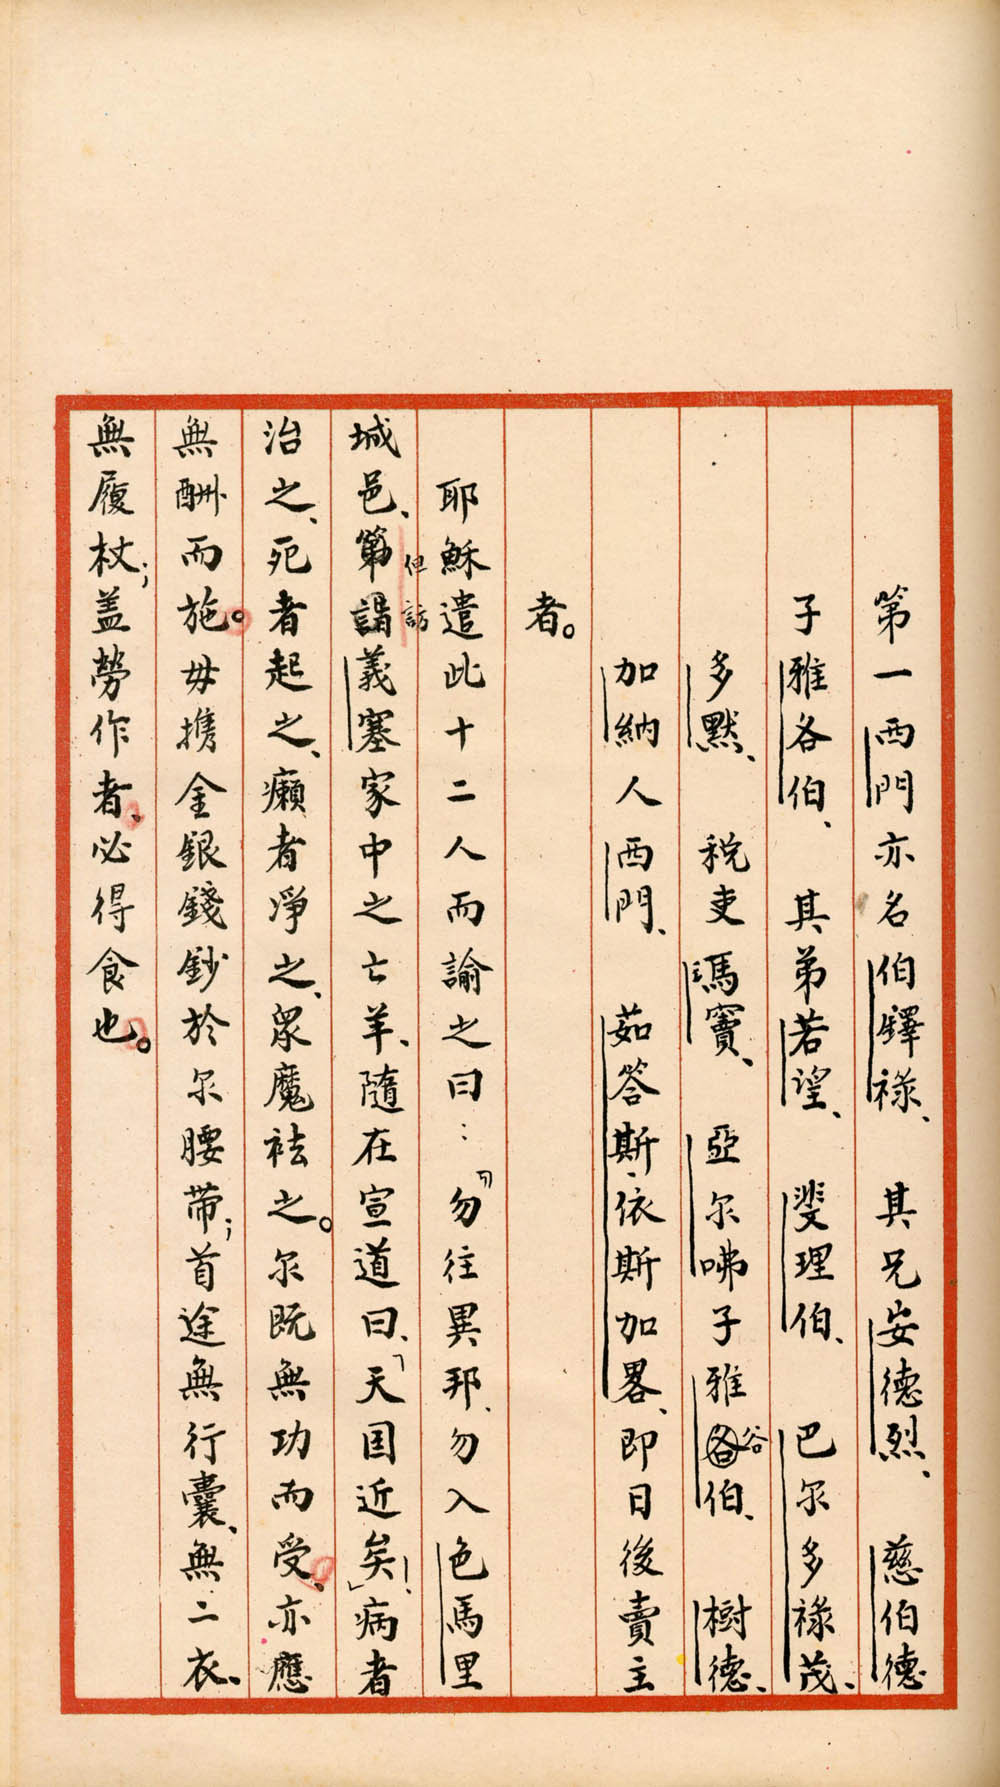 第一西門亦名伯鐸祿、其兄安德烈、慈伯德
子雅各伯、其弟若望、斐理伯、巴尔多祿茂、
多默、稅吏瑪竇、亞尔咈子雅谷伯、樹德、
加納人西門、茹答斯·依斯加畧、即日後賣主
者。
耶穌遣此十二人而諭之曰：「勿往異邦、勿入色馬里
城邑、但訪義塞家中之亡羊、隨在宣道曰、「天国近矣！」病者
治之、死者起之、癩者淨之、眾魔祛之。尔既無功而受、亦應
無酬而施。毋攜金銀錢鈔於尔腰帶；首途無行囊、無二衣、
無履杖；盖勞作者、必得食也。